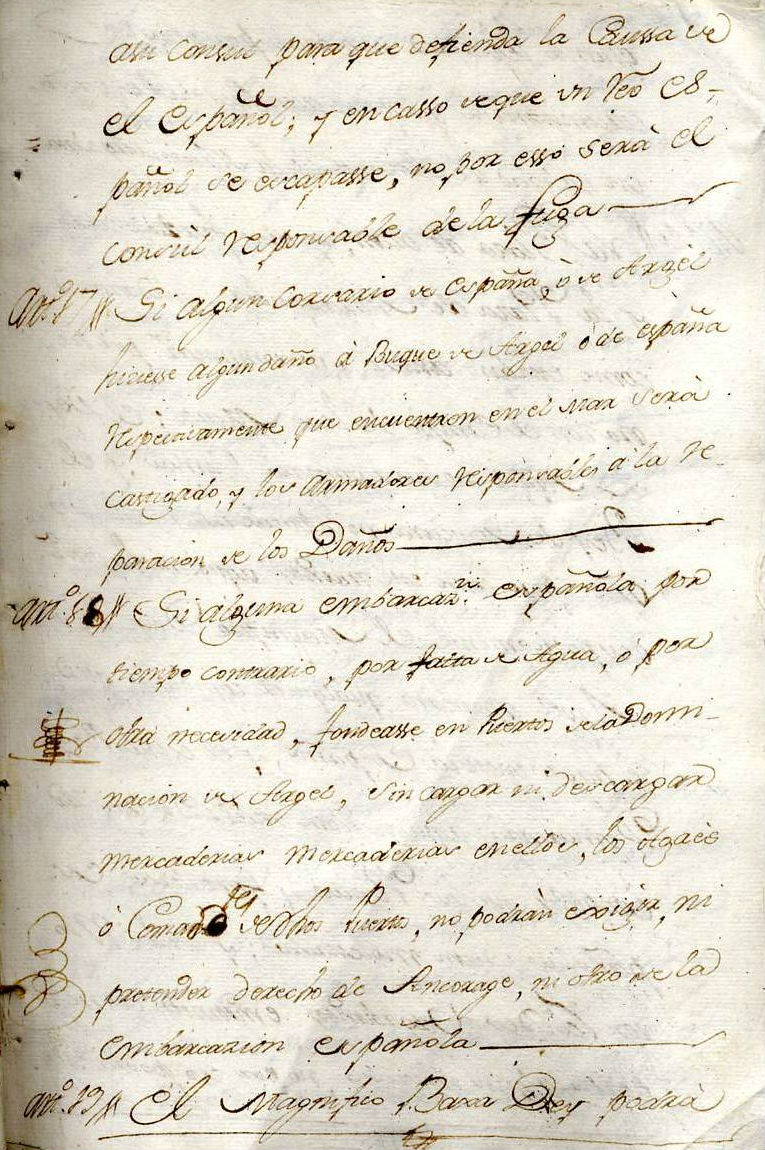 asu Consul para que defienda la Caussa de
el Español; y en casso de que un Reo Es-
pañol se escapasse, no por esso será el
Consul responsable de la fuga
Art.º 17 Si algun Corsario de España, ò de Argèl
hiciesse algun daño à Buque de Argel ò de España
respectivamente que encuentren en el Mar serà
castigado, y los Armadores responsables à la re-
paracion de los Daños
Art.º 18 Si alguna embarcaz.n Española por
tiempo contrario, por falta de Agua, ò por
otra necesidad, fondeasse en Puertos de la Domi-
nacion de Argel, sin cargar ni descargar
mercaderias mercaderias en ellos, los Agaès
ò Comand.tes de dhos Puertos, no podràn exigir, ni
pretender derecho de Ancorage, ni otro de la
embarcazion española
Art.º 19 El Magnifico Baxa Dey podrà